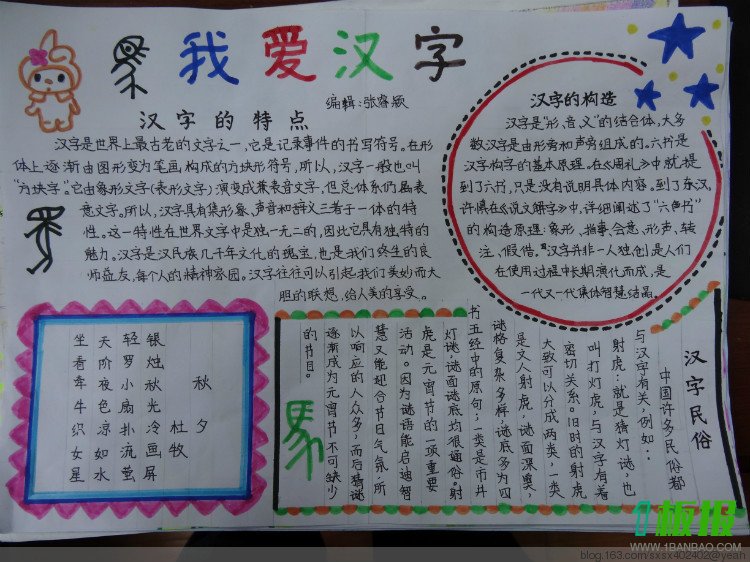 我爱汉字
编辑:张睿颖
汉字的特点
汉字是世界上最古老的文字之一,它是记录事件的书写符号。在形
体上逐渐由图形变为笔画,构成的方块形符号,所以,汉字一般也叫
"方块字"。它由象形文字(表形文字)演变成兼表音文字,但总体系仍属表
意文字。所以,汉字具有集形象、声音和辞义三者于一体的特
性。这一特性在世界文字中是独一无二的,因此它具有独特的
魅力。汉字是汉民族几千年文化的瑰宝,也是我们终生的良
师益友,每个人的精神家园。汉字往往可以引起我们美妙而大
胆的联想,给人美的享受。
汉字的构造
汉字是"形、音、义"的结合体,大多
数汉字是由形旁和声旁组成的。六书是
汉字构字的基本原理,在《周礼》中就提
到了六书,只是没有说明具体内容。到了东汉,
许慎在《说文解字》中,详细阐述了"六色书"
的构造原理:象形、指事、会意、形声、转
注、假借。汉字并非一人独创,是人们
在使用过程中长期演化而成,是
一代又一代集体智慧结晶。
秋夕
杜牧
银烛秋光冷画屏
轻罗小扇扑流萤
天阶夜色凉如水
坐看牵牛织女星
汉字民俗
中国许多民俗都
与汉字有关,例如:
射虎:就是猜灯谜,也
叫打灯虎,与汉字有着
密切关系。旧时的射虎
大致可以分成两类,一类
是文人射虎,谜面深奥,
谜格复杂多样,谜底多为四
书五经中的原句;一类是市井
灯谜,谜面谜底均很通俗。射
虎是元宵节的一项重要
活动。因为谜语能启迪智
慧又能迎合节日气氛,所
以响应的人众多,而后猜谜
逐渐成为元宵节不可缺少
的节目。
1板报
WWW.1BANBAO.COM
blog.163.com/sxsx402402@yeah